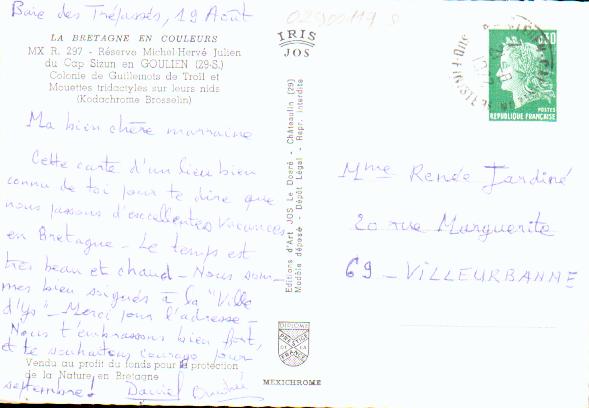 Baie des Trépassés, 19 Août
LA BRETAGNE EN COULEURS
MX R. 297 - Réserve Michel-Hervé Julien
du Cap Sizun en GOULIEN (29-S.)
Colonie de Guillemots de Troïl et
Mouettes tridactyles sur leurs nids
(Kodachrome Brosselin)
Ma bien chère marraine
Cette carte d'un lieu bien
connu de toi pour te dire que
nous passons d'excellentes vacances
en Bretagne - Le temps est
très beau et chaud - Nous som-
mes bien soignés à la "Ville
d'Ys" - Merci pour l'adresse -
Nous t'embrassons bien fort,
et te souhaitons courage pour
septembre! Daniel
Vendu au profit du fonds pour la protection
de la Nature en Bretagne
IRIS
JOS
Editions d'Art JOS Le Doaré - Châteaulin (29)
Modèle déposé - Dépôt Légal - Repr. interdite
DIPLOME
PRESTIGE
DE LA
FRANCE
MEXICHROME
POSTES
REPUBLIQUE FRANÇAISE
Mme Renée Jardiné
20 rue Marguerite
69 - VILLEURBANNE